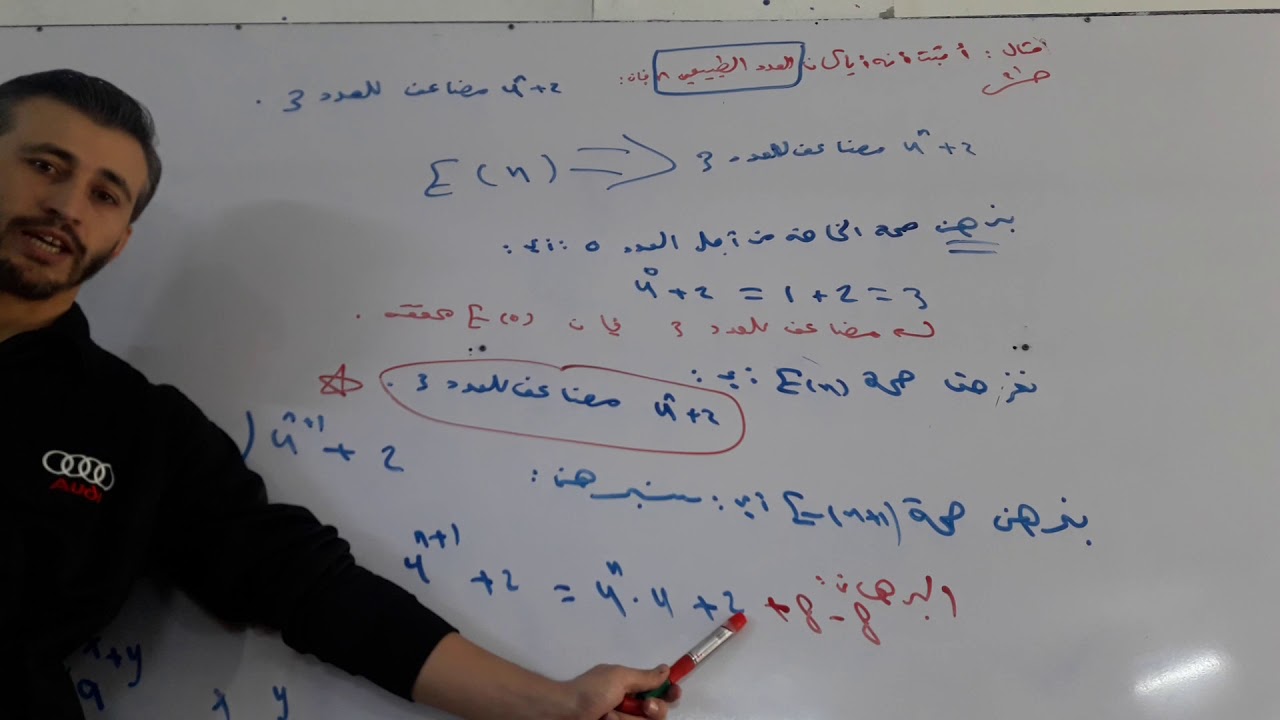 مثال: أثبت أنه أياً كان العدد الطبيعي n فإن:
4ⁿ+2 مضاعف للعدد 3 .
E(n) ⇒ 4ⁿ+2 مضاعف للعدد 3
نبرهن صحة الخاصة من أجل العدد 0 :أي:
4⁰+2 = 1+2 = 3
مضاعف للعدد 3 E(0) محققة .
نفرض صحة E(n) أي:
4ⁿ+2 مضاعف للعدد 3 .
نبرهن صحة E(n+1) أي: سنبرهن:
4ⁿ⁺¹ + 2
البرهان:
4ⁿ⁺¹ +2 = 4ⁿ·4 +2 +8-8
Audi
x+y
x y